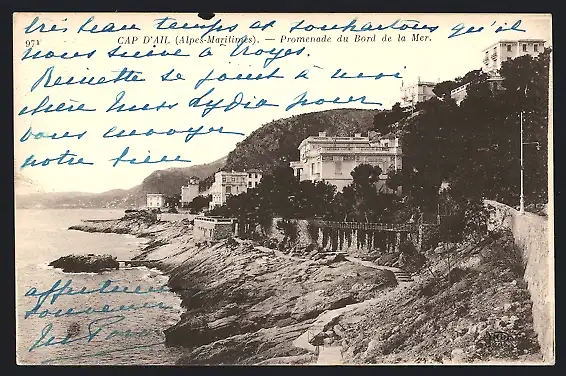 très beau temps et souhaitons qu'il
971 CAP D'AIL (Alpes-Maritimes) — Promenade du Bord de la Mer.
nous suive à Troyes.
Reinette se joint à moi
chère Miss Lydia pour
vous envoyer
notre bien
affectueux
souvenir